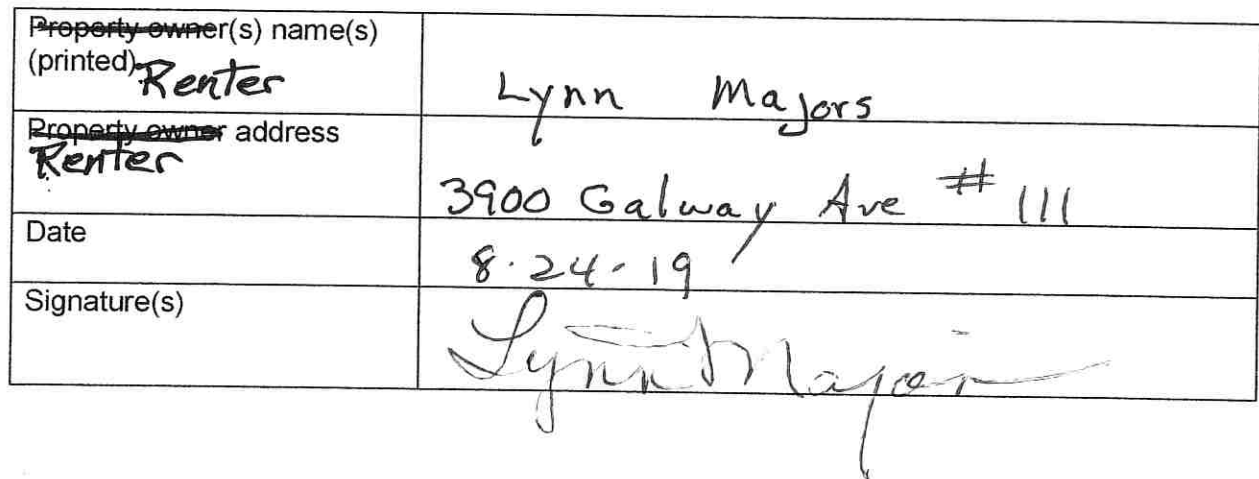 Property owner(s) name(s)
(printed)
Renter
Lynn Majors
Property owner address
Renter
3900 Galway Ave # 111
Date
8.24.19
Signature(s)
Lynn Majors